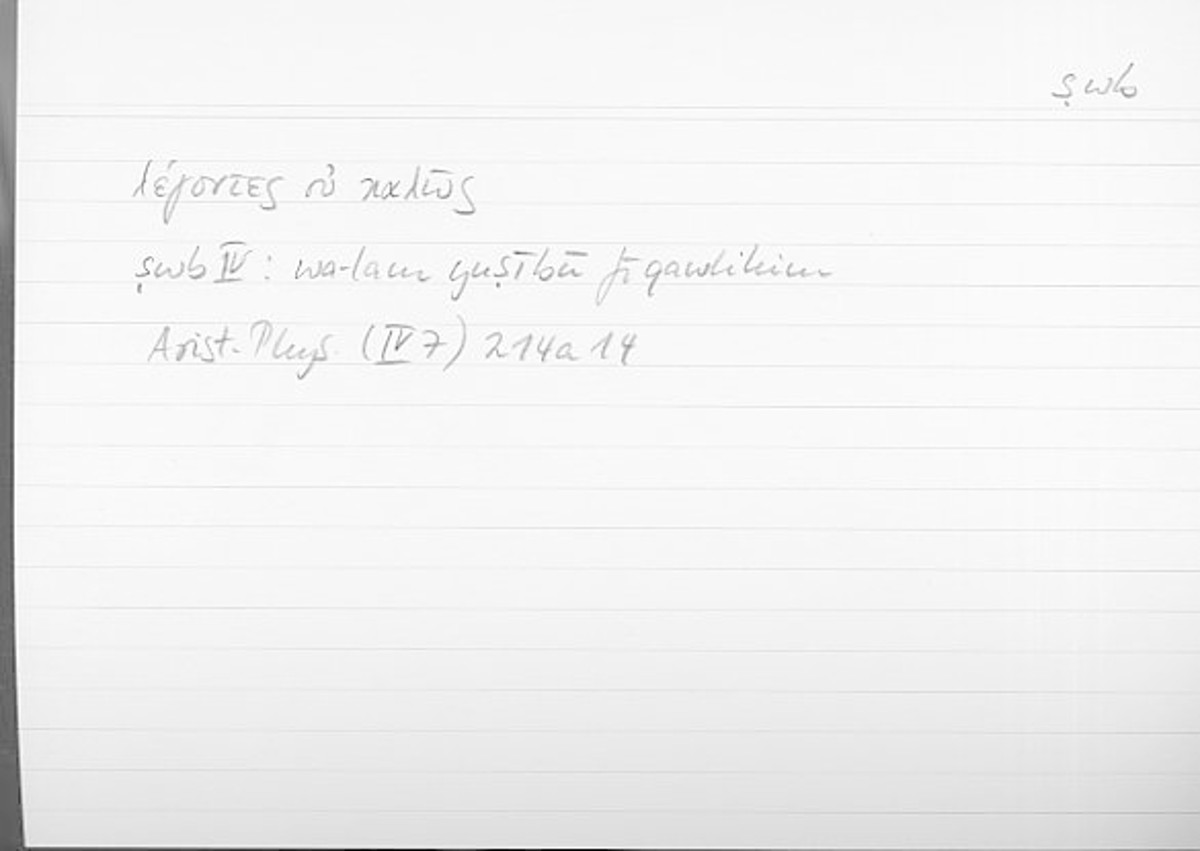 ṣwb
λέγοντες οὐ καλῶς
ṣwb IV: wa-lam yuṣībū fī qawlihim
Arist. Phys. (IV 7) 214a14